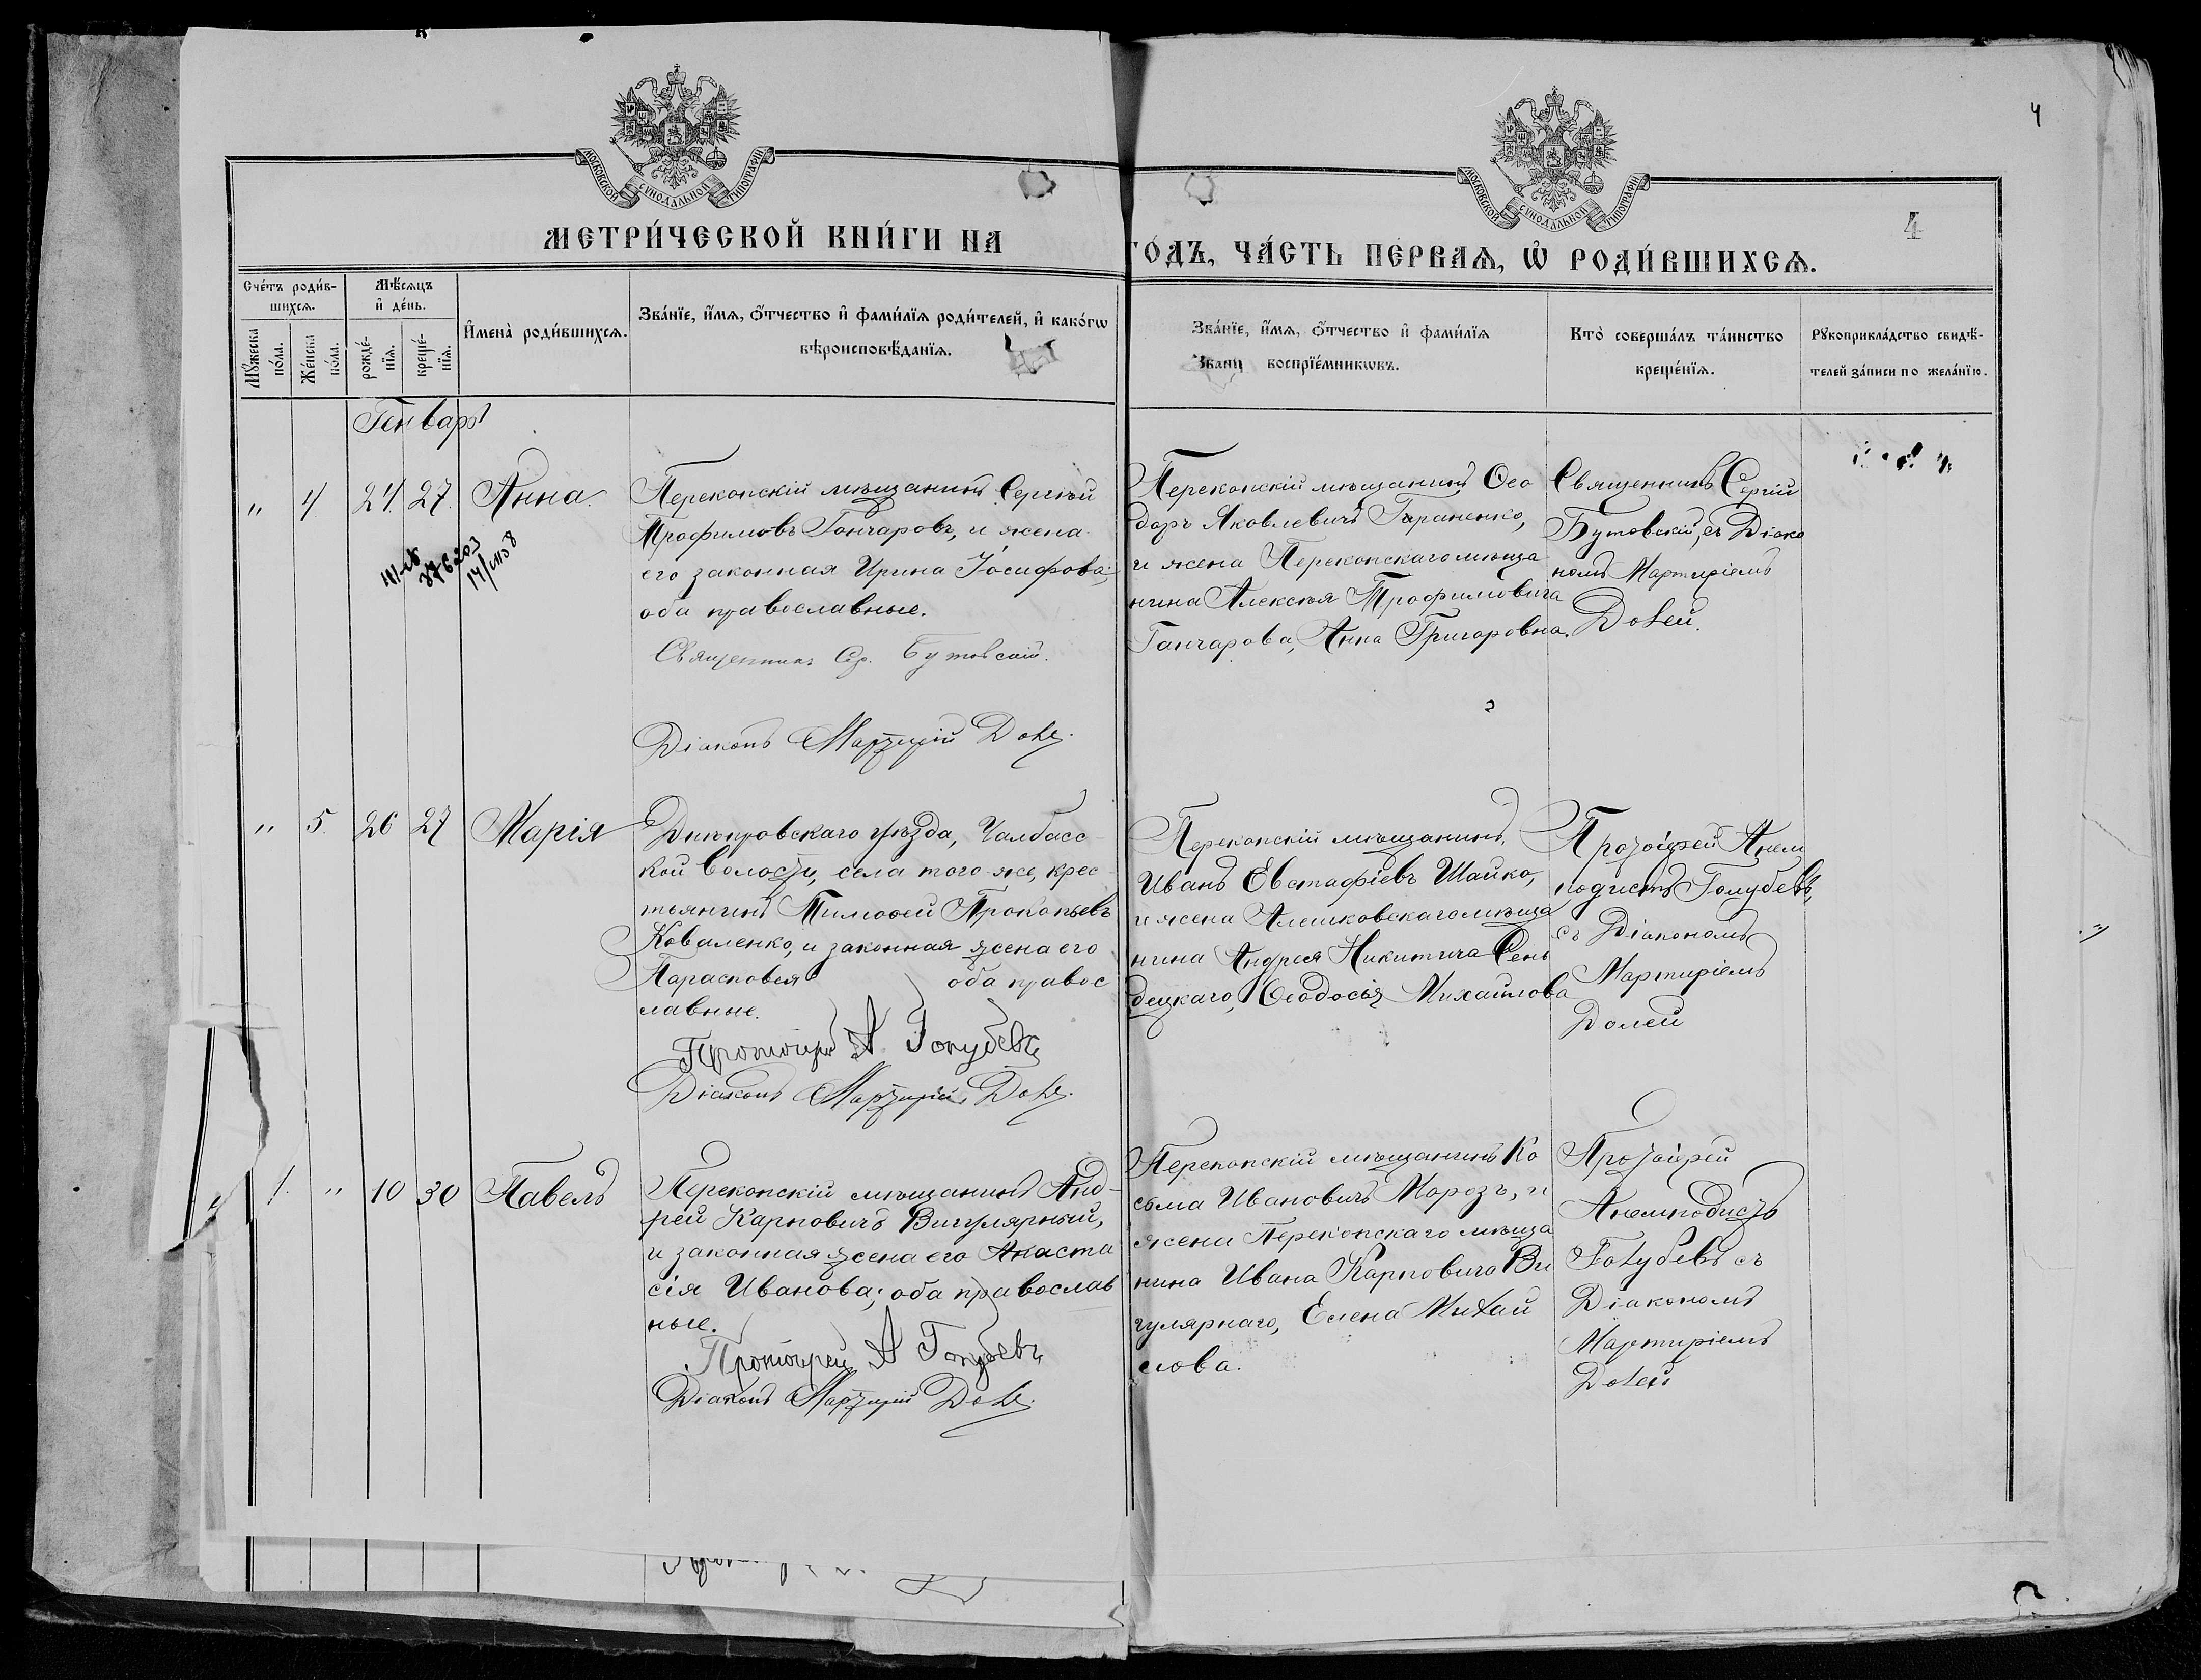 4
МОСКОВСКОЙ СѴНОДАЛЬНОЙ ТИПОГРАФІИ
МОСКОВСКОЙ СѴНОДАЛЬНОЙ ТИПОГРАФІИ
4
МЕТРИ́ЧЕСКОЙ КНИ́ГИ НА
ГО́ДЪ, ЧА́СТЬ ПЕ́РВАѦ, Ѽ РОДИ́ВШИХСѦ.
Сче́тъ роди́в-
шихсѧ.
Мꙋ́жеска
по́ла.
Же́нска
по́ла.
Мѣ́сѧцъ
и҆ де́нь.
рожде́-
нїѧ.
креще́-
нїѧ.
И҆мена̀ роди́вшихсѧ.
Зва́нїе, и҆́мѧ, ѻ҆́тчество и҆ фами́лїѧ роди́телей, и҆ како́гѡ
вѣроисповѣ́данїѧ.
Зва́нїе, и҆́мѧ, ѻ҆́тчество и҆ фами́лїѧ
воспрїе́мникѡвъ.
Кто̀ соверша́лъ та́инство
креще́нїѧ.
Рꙋкоприкла́дство свидѣ́-
телей за́писи по жела́нїю.
Генварь
" 4 24. 27. Анна.
Перекопскій мѣщанинъ Сергѣй
Трофимовъ Гончаровъ, и жена
его законная Ирина Іосифова;
оба православные.
Священникъ Сер. Бутовскій.
Діаконъ Мартирій Долей.
Перекопскій мѣщанинъ Ѳео
доръ Яковлевичъ Гараненко,
и жена Перекопскаго мѣща
нина Алексѣя Трофимовича
Гончарова, Анна Григоровна.
Священникъ Сергій
Бутовскій, съ Діако
номъ Мартиріемъ
Долей.
" 5. 26 27 Марія
Днѣпровскаго уѣзда, Чалбасс
кой волости, села того-же, крес
тьянинъ Тимоѳей Прокопьевъ
Коваленко, и законная жена его
Парасковея оба правос
лавные.
Протоіерей А Голубевъ
Діаконъ Мартирій Долей.
Перекопскій мѣщанинъ,
Иванъ Евстафіевъ Шайко,
и жена Алешковскаго мѣща
нина Андрея Никитича Сень
децкаго, Ѳеодосья Михайлова
Протоіерей Анем
подистъ Голубевъ,
съ Діакономъ
Мартиріемъ
Долей
1. " 10 30 Павелъ
Перекопскій мѣщанинъ Анд-
рей Карповичъ Вигулярный,
и законная жена его Анаста
сія Иванова; оба православ
ные.
Протоіерей А Голубевъ
Діаконъ Мартирій Долей.
Перекопскій мѣщанинъ Ко
сьма Ивановичъ Морозъ, и
жена Перекопскаго мѣща
нина Ивана Карповича Ви
гулярнаго, Елена Михай
лова.
Протоіерей
Анемподистъ
Голубевъ съ
Діакономъ
Мартиріемъ
Долей